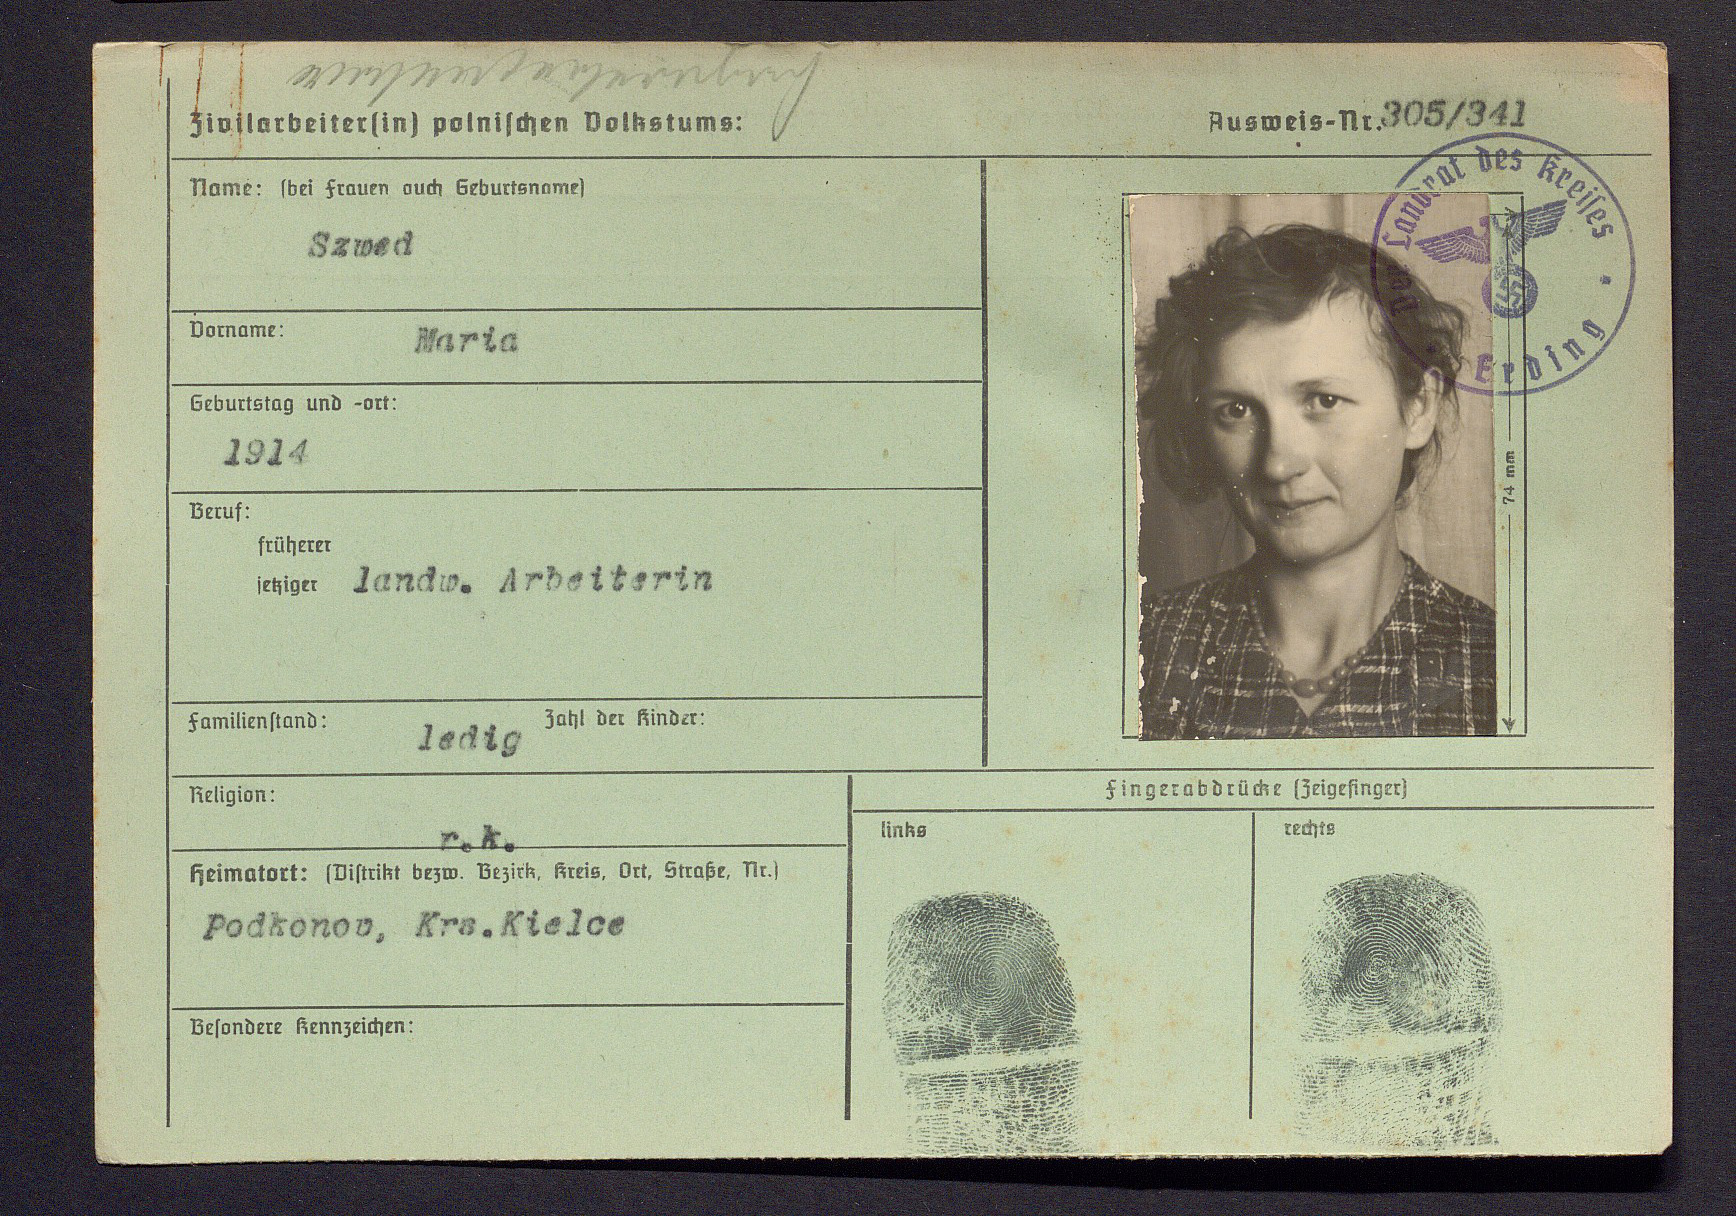 Zivilarbeiter(in) polnischen Volkstums:
Ausweis-Nr. 305/341
Name: (bei Frauen auch Geburtsname)
Szwed
Vorname: Maria
Geburtstag und -ort:
1914
Beruf:
früherer
jetziger landw. Arbeiterin
Familienstand: ledig Zahl der Kinder:
Religion:
r.k.
Heimatort: (Distrikt bezw. Bezirk, Kreis, Ort, Straße, Nr.)
Podkonov, Krs.Kielce
Besondere Kennzeichen:
Der Landrat des Kreises
Erding
74 mm
Fingerabdrücke (Zeigefinger)
links
rechts